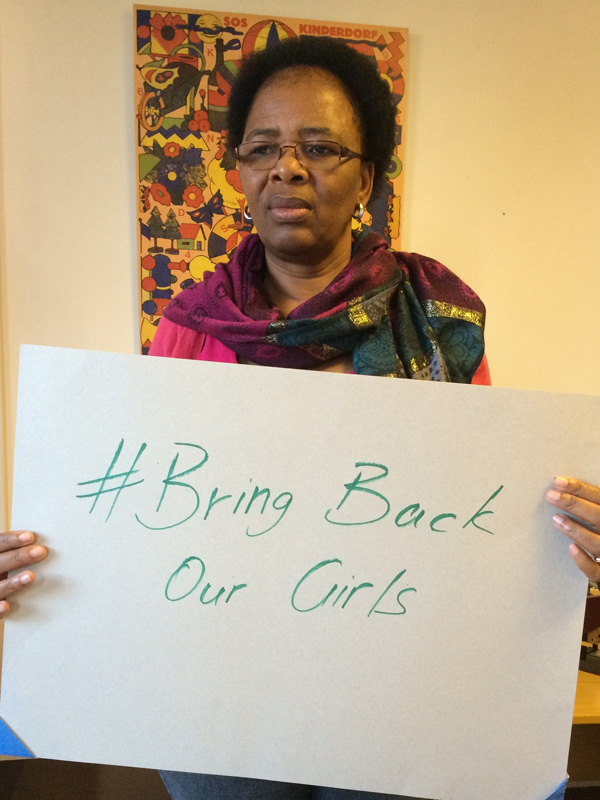 SOS
KINDERDORF
#Bring Back
Our Girls